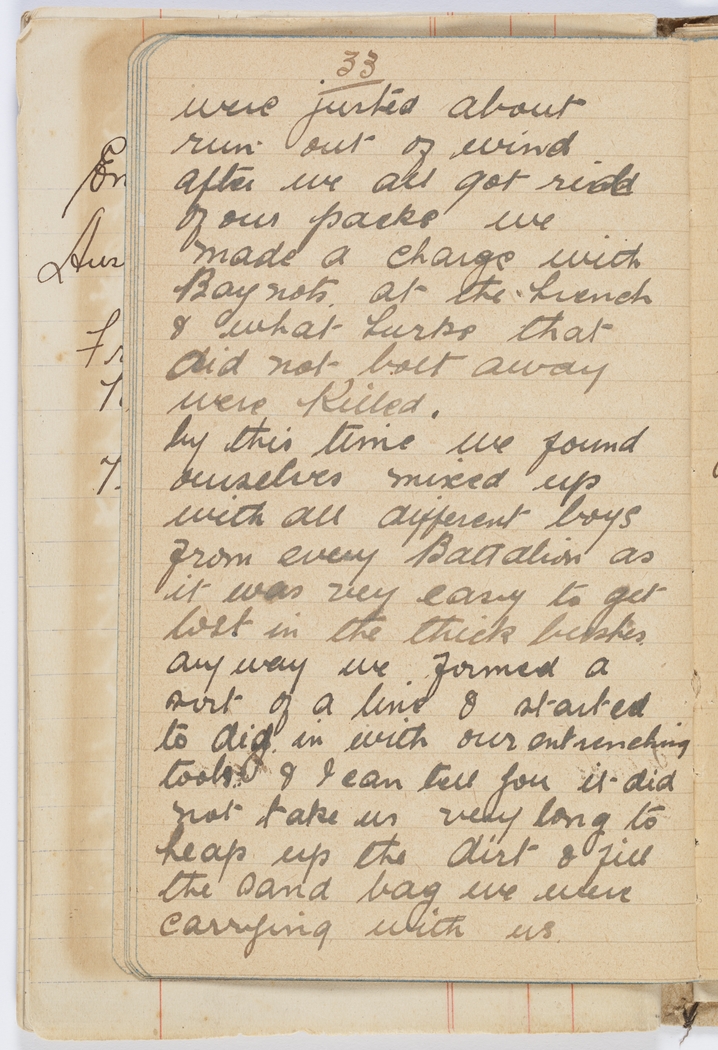 33
were justed about
run out of wind
after we all got ridd
of our packs we
made a charge with
Baynots. at the trench
& what Turks that
did not bolt away
were Killed.
by this time we found
ourselves mixed up
with all different boys
from every Battalion as
it was very easy to get
lost in the thick bushes
anyway we formed a
sort of a line & started
to dig in with our entrenching
tools & I can tell you it did
not take us very long to
heap up the dirt & fill
the sand bag we were
carrying with us.